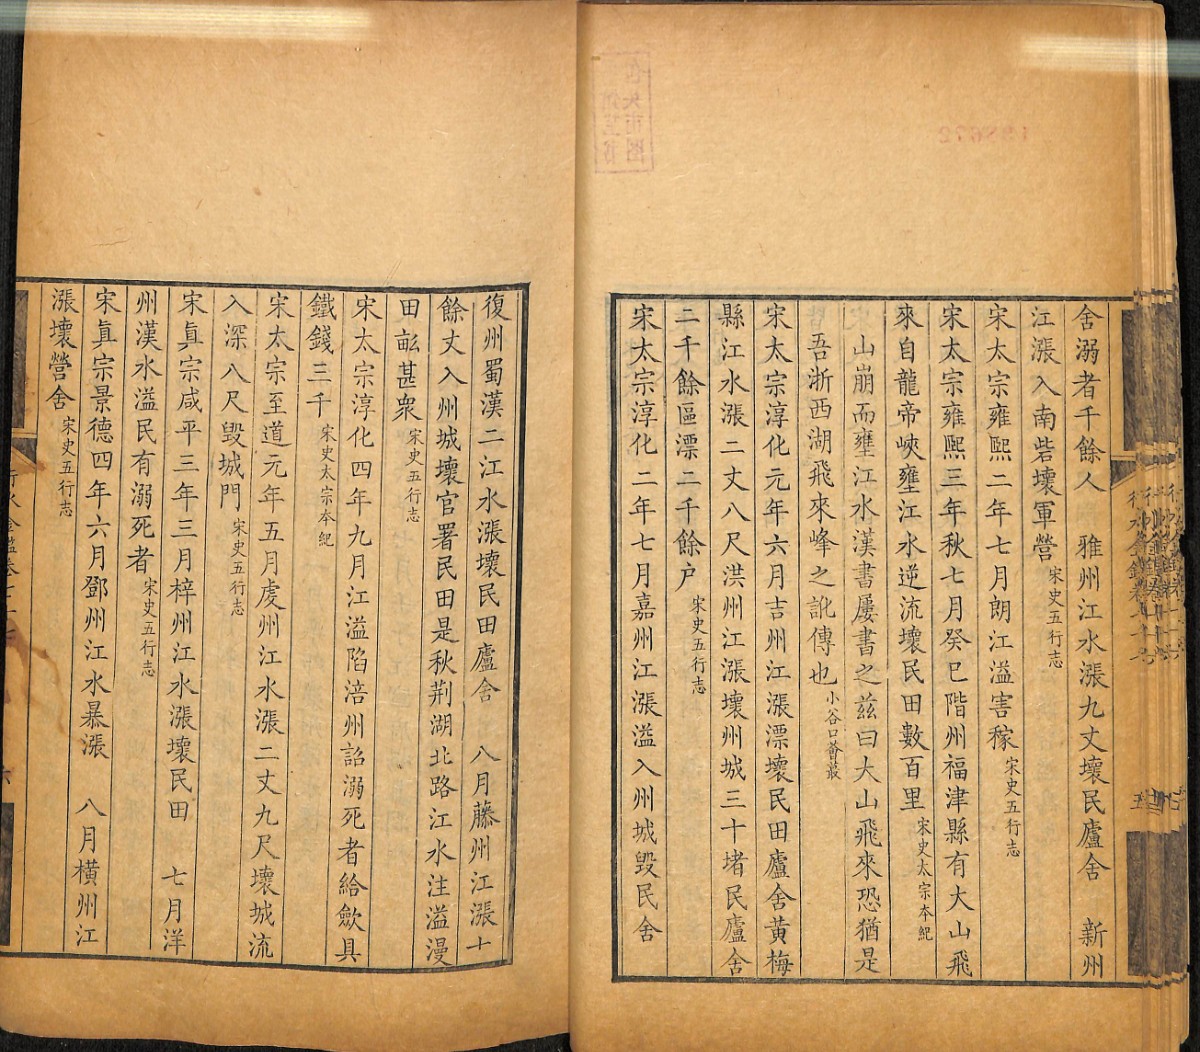 舍溺者千餘人　雅州江水漲九丈壞民廬舍　新州
江漲入南砦壞軍營宋史五行志
宋太宗雍熙二年七月朗江溢害稼宋史五行志
宋太宗雍熙三年秋七月癸巳階州福津縣有大山飛
來自龍帝峽壅江水逆流壞民田數百里宋史太宗本紀
山崩而壅江水漢書屢書之兹曰大山飛來恐猶是
吾浙西湖飛來峰之訛傳也小谷口薈蕞
宋太宗淳化元年六月吉州江漲漂壞民田廬舍黃梅
縣江水漲二丈八尺洪州江漲壞州城三十堵民廬舍
二千餘區漂二千餘户宋史五行志
宋太宗淳化二年七月嘉州江漲溢入州城毀民舍
復州蜀漢二江水漲壞民田廬舍　八月藤州江漲十
餘丈入州城壞官署民田是秋荆湖北路江水注溢漫
田畝甚衆宋史五行志
宋太宗淳化四年九月江溢陷涪州詔溺死者給歛具
鐵錢三千宋史太宗本紀
宋太宗至道元年五月虔州江水漲二丈九尺壞城流
入深八尺毀城門宋史五行志
宋眞宗咸平三年三月梓州江水漲壞民田　七月洋
州漢水溢民有溺死者宋史五行志
宋眞宗景德四年六月鄧州江水暴漲　八月橫州江
漲壞營舍宋史五行志